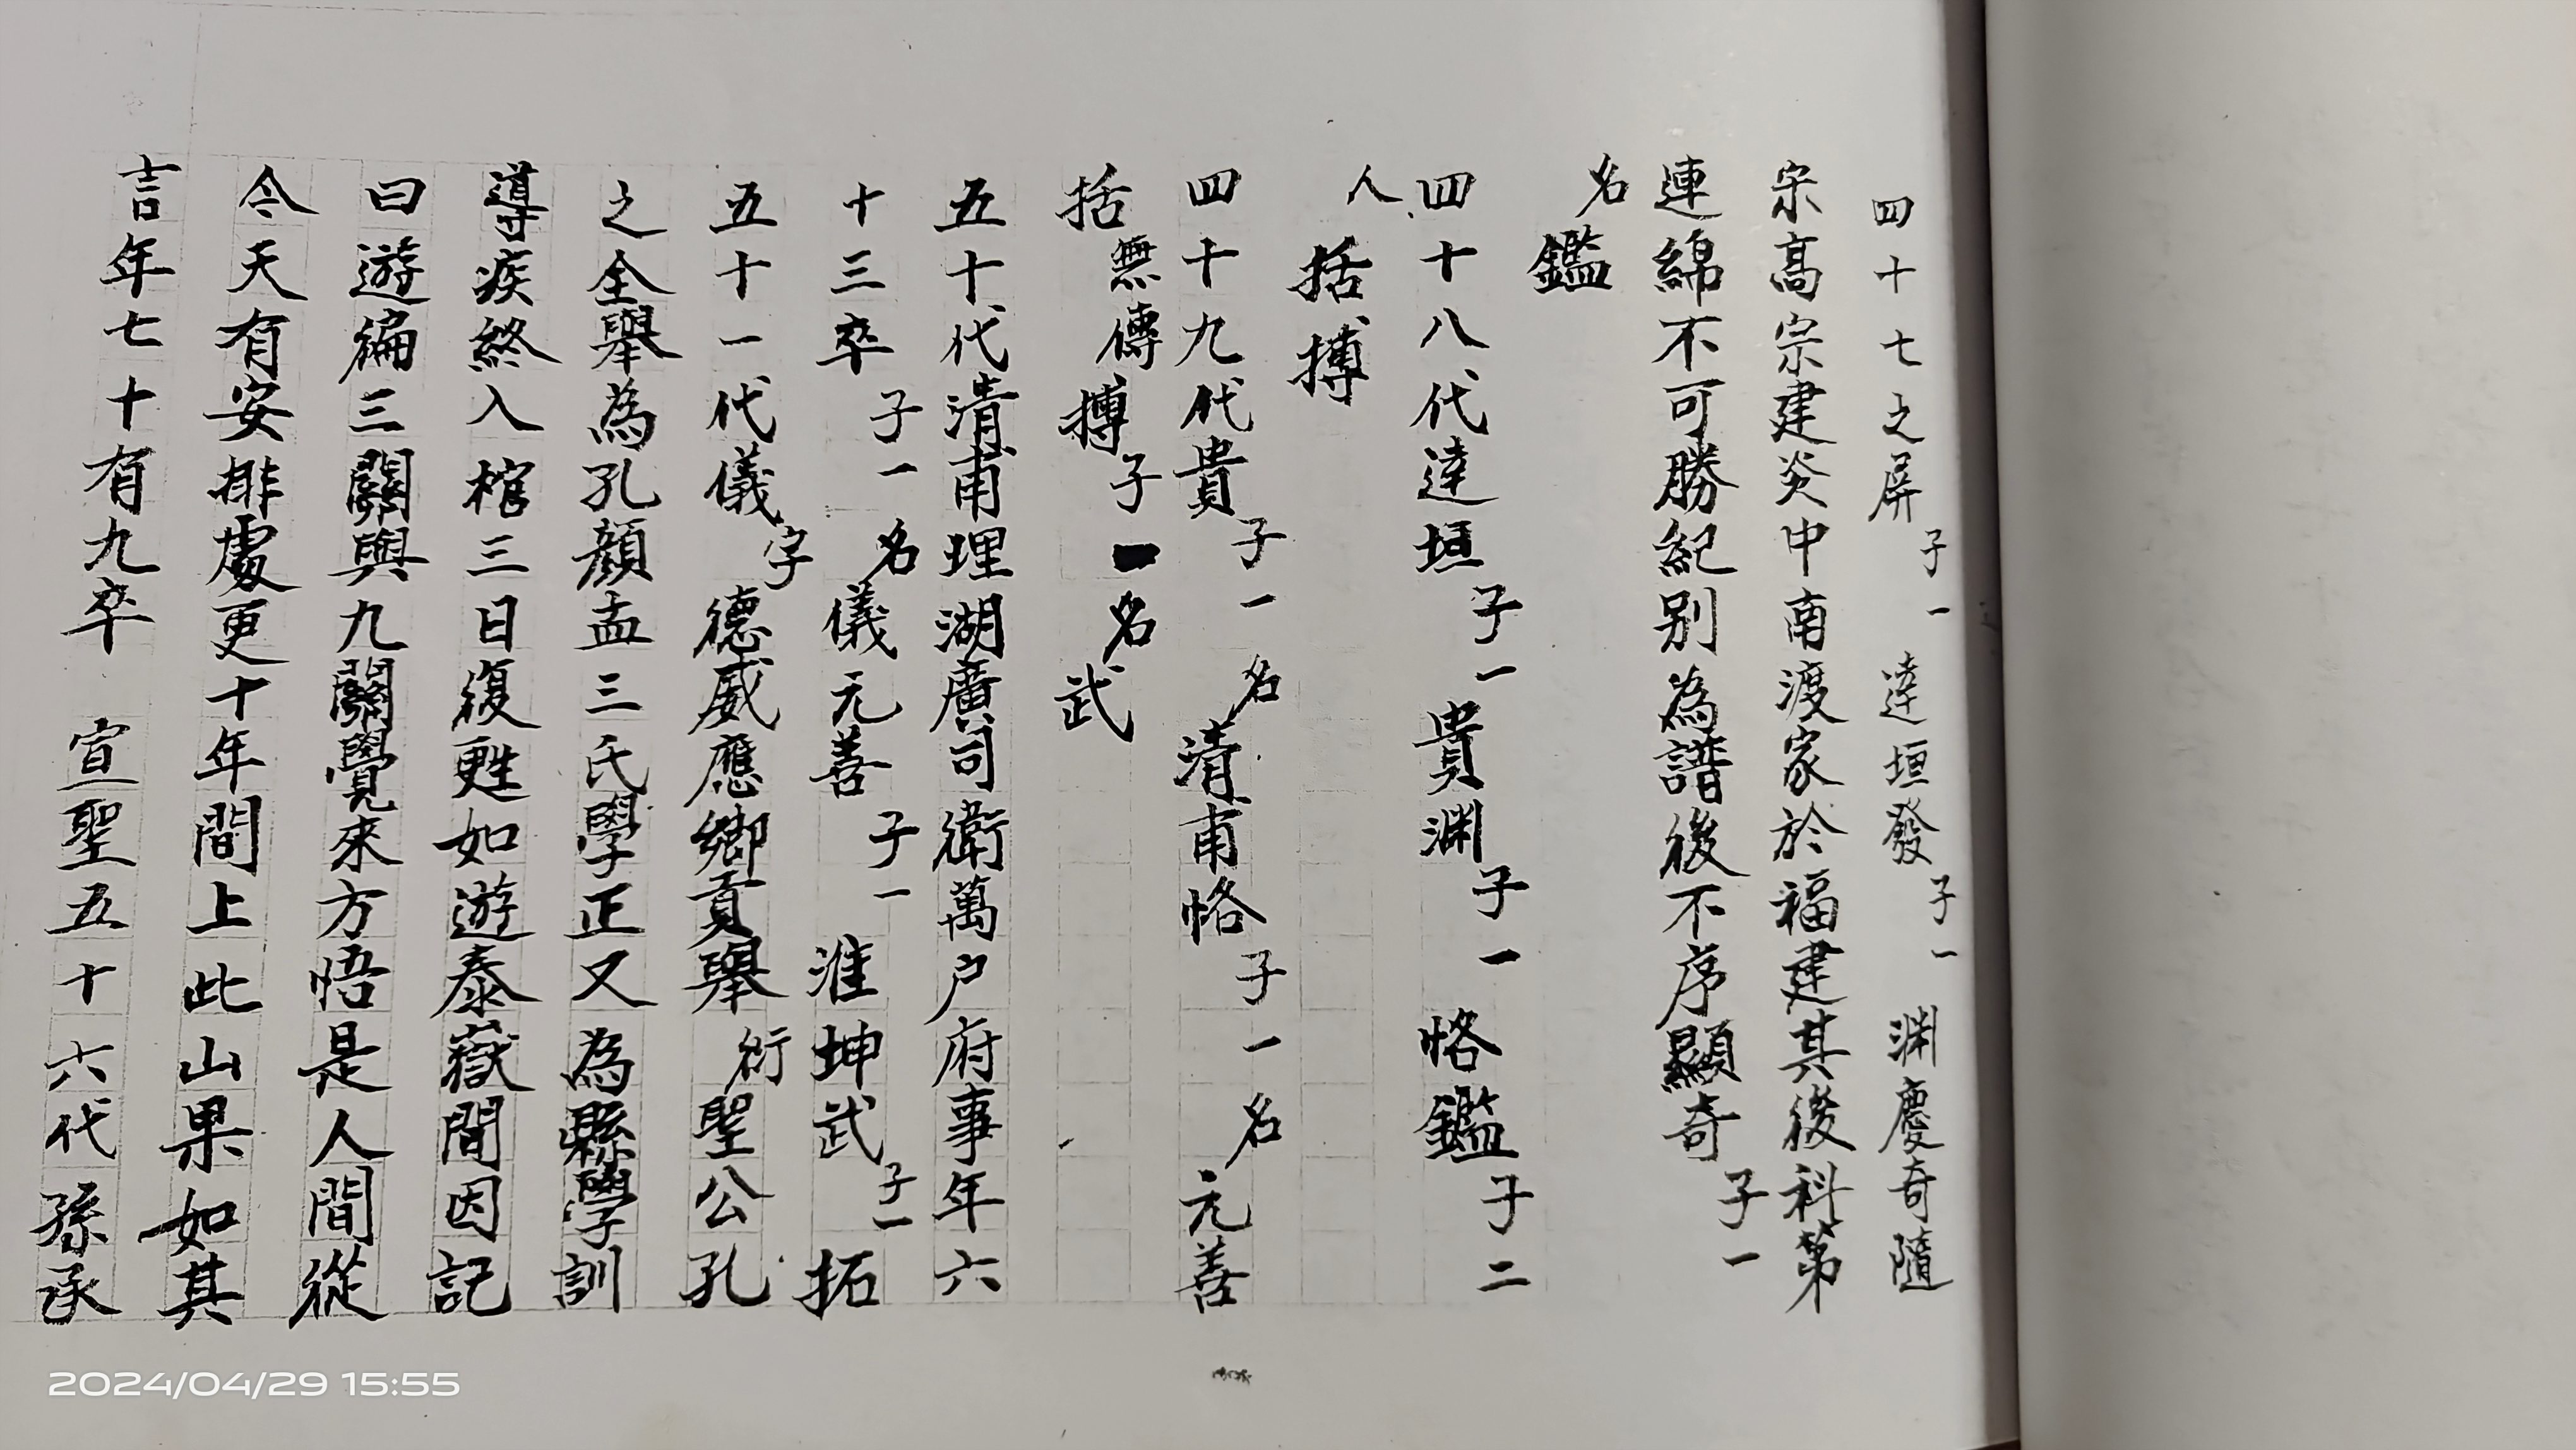 四十七之屏子一達垣發子一渊慶奇隨
宋高宗建炎中南渡家於福建其後科第
連綿不可勝紀别為譜後不序顯奇子一
名鑑
四十八代達垣子一貴渊子一恪鑑子二
人括搏
四十九代貴子一名清甫恪子一名元善
括無傳搏子一名武
五十代清甫理湖廣司衛萬户府事年六
十三卒子一名儀元善子一淮坤武子一拓
五十一代儀字德威應鄉貢舉衍聖公孔
之全舉為孔顏孟三氏學正又為縣學訓
導疾終入棺三日復甦如遊泰嶽間因記
曰遊徧三關與九關覺來方悟是人間從
今天有安排處更十年間上此山果如其
言年七十有九卒 宣聖五十六代孫承
2024/04/29 15:55